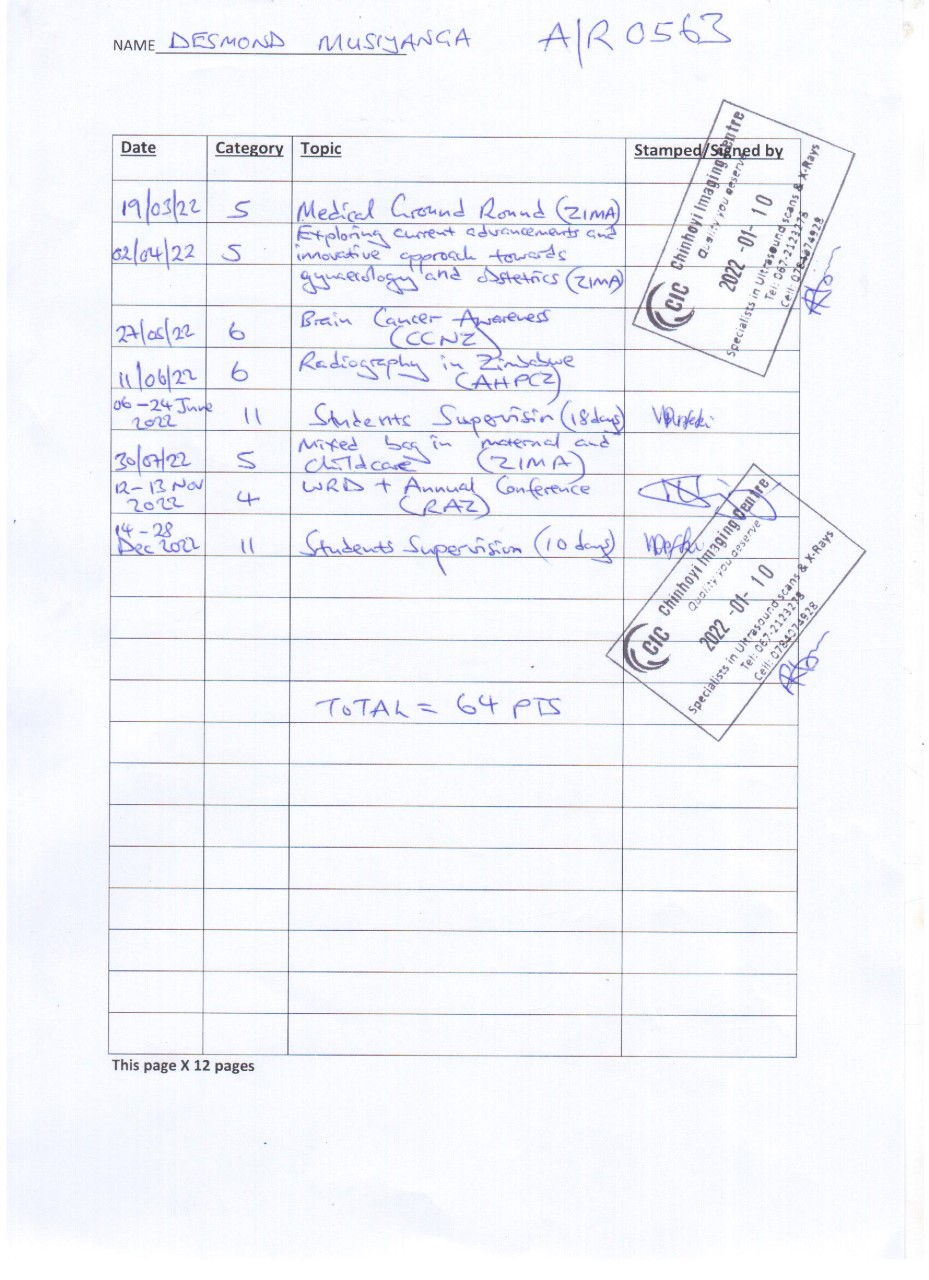 NAME DESMOND MUSIYANGA A/R 0563
Date Category Topic Stamped/Signed by
19/03/22 5 Medical Ground Round (ZIMA)
02/04/22 5 Exploring current advancements and
innovative approach towards
gynaecology and obstetrics (ZIMA)
27/05/22 6 Brain Cancer Awareness
(CCNZ)
11/06/22 6 Radiography in Zimbabwe
(AHPCZ)
06 - 24 June
2022 11 Students Supervisin (18 days)
30/07/22 5 Mixed bag in maternal and
Childcare (ZIMA)
12 - 13 Nov
2022 4 WRD + Annual Conference
(RAZ)
14 - 28
Dec 2022 11 Students Supervision (10 days)
TOTAL = 64 PTS
CIC Chinhoyi Imaging Centre
Quality you deserve
2022 -01- 10
Specialists in Ultrasound scans & X-Rays
Tel: 067-2123278
Cell: 0784074928
CIC Chinhoyi Imaging Centre
Quality you deserve
2022 -01- 10
Specialists in Ultrasound scans & X-Rays
Tel: 067-2123278
Cell: 0784074928
This page X 12 pages